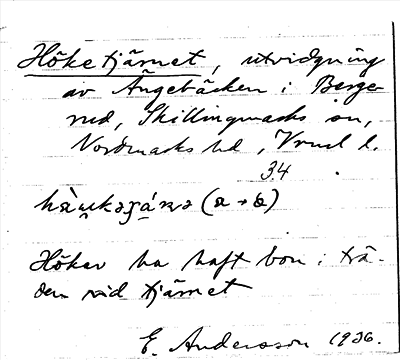 Höketjärnet, utvidgning
av Ängebäcken i Berge-
rud, Skillingmarks sn,
Nordmarks hd, Vrml l.
34
Hökar ha haft bon i trä-
den vid tjärnet
E. Andersson 1936.